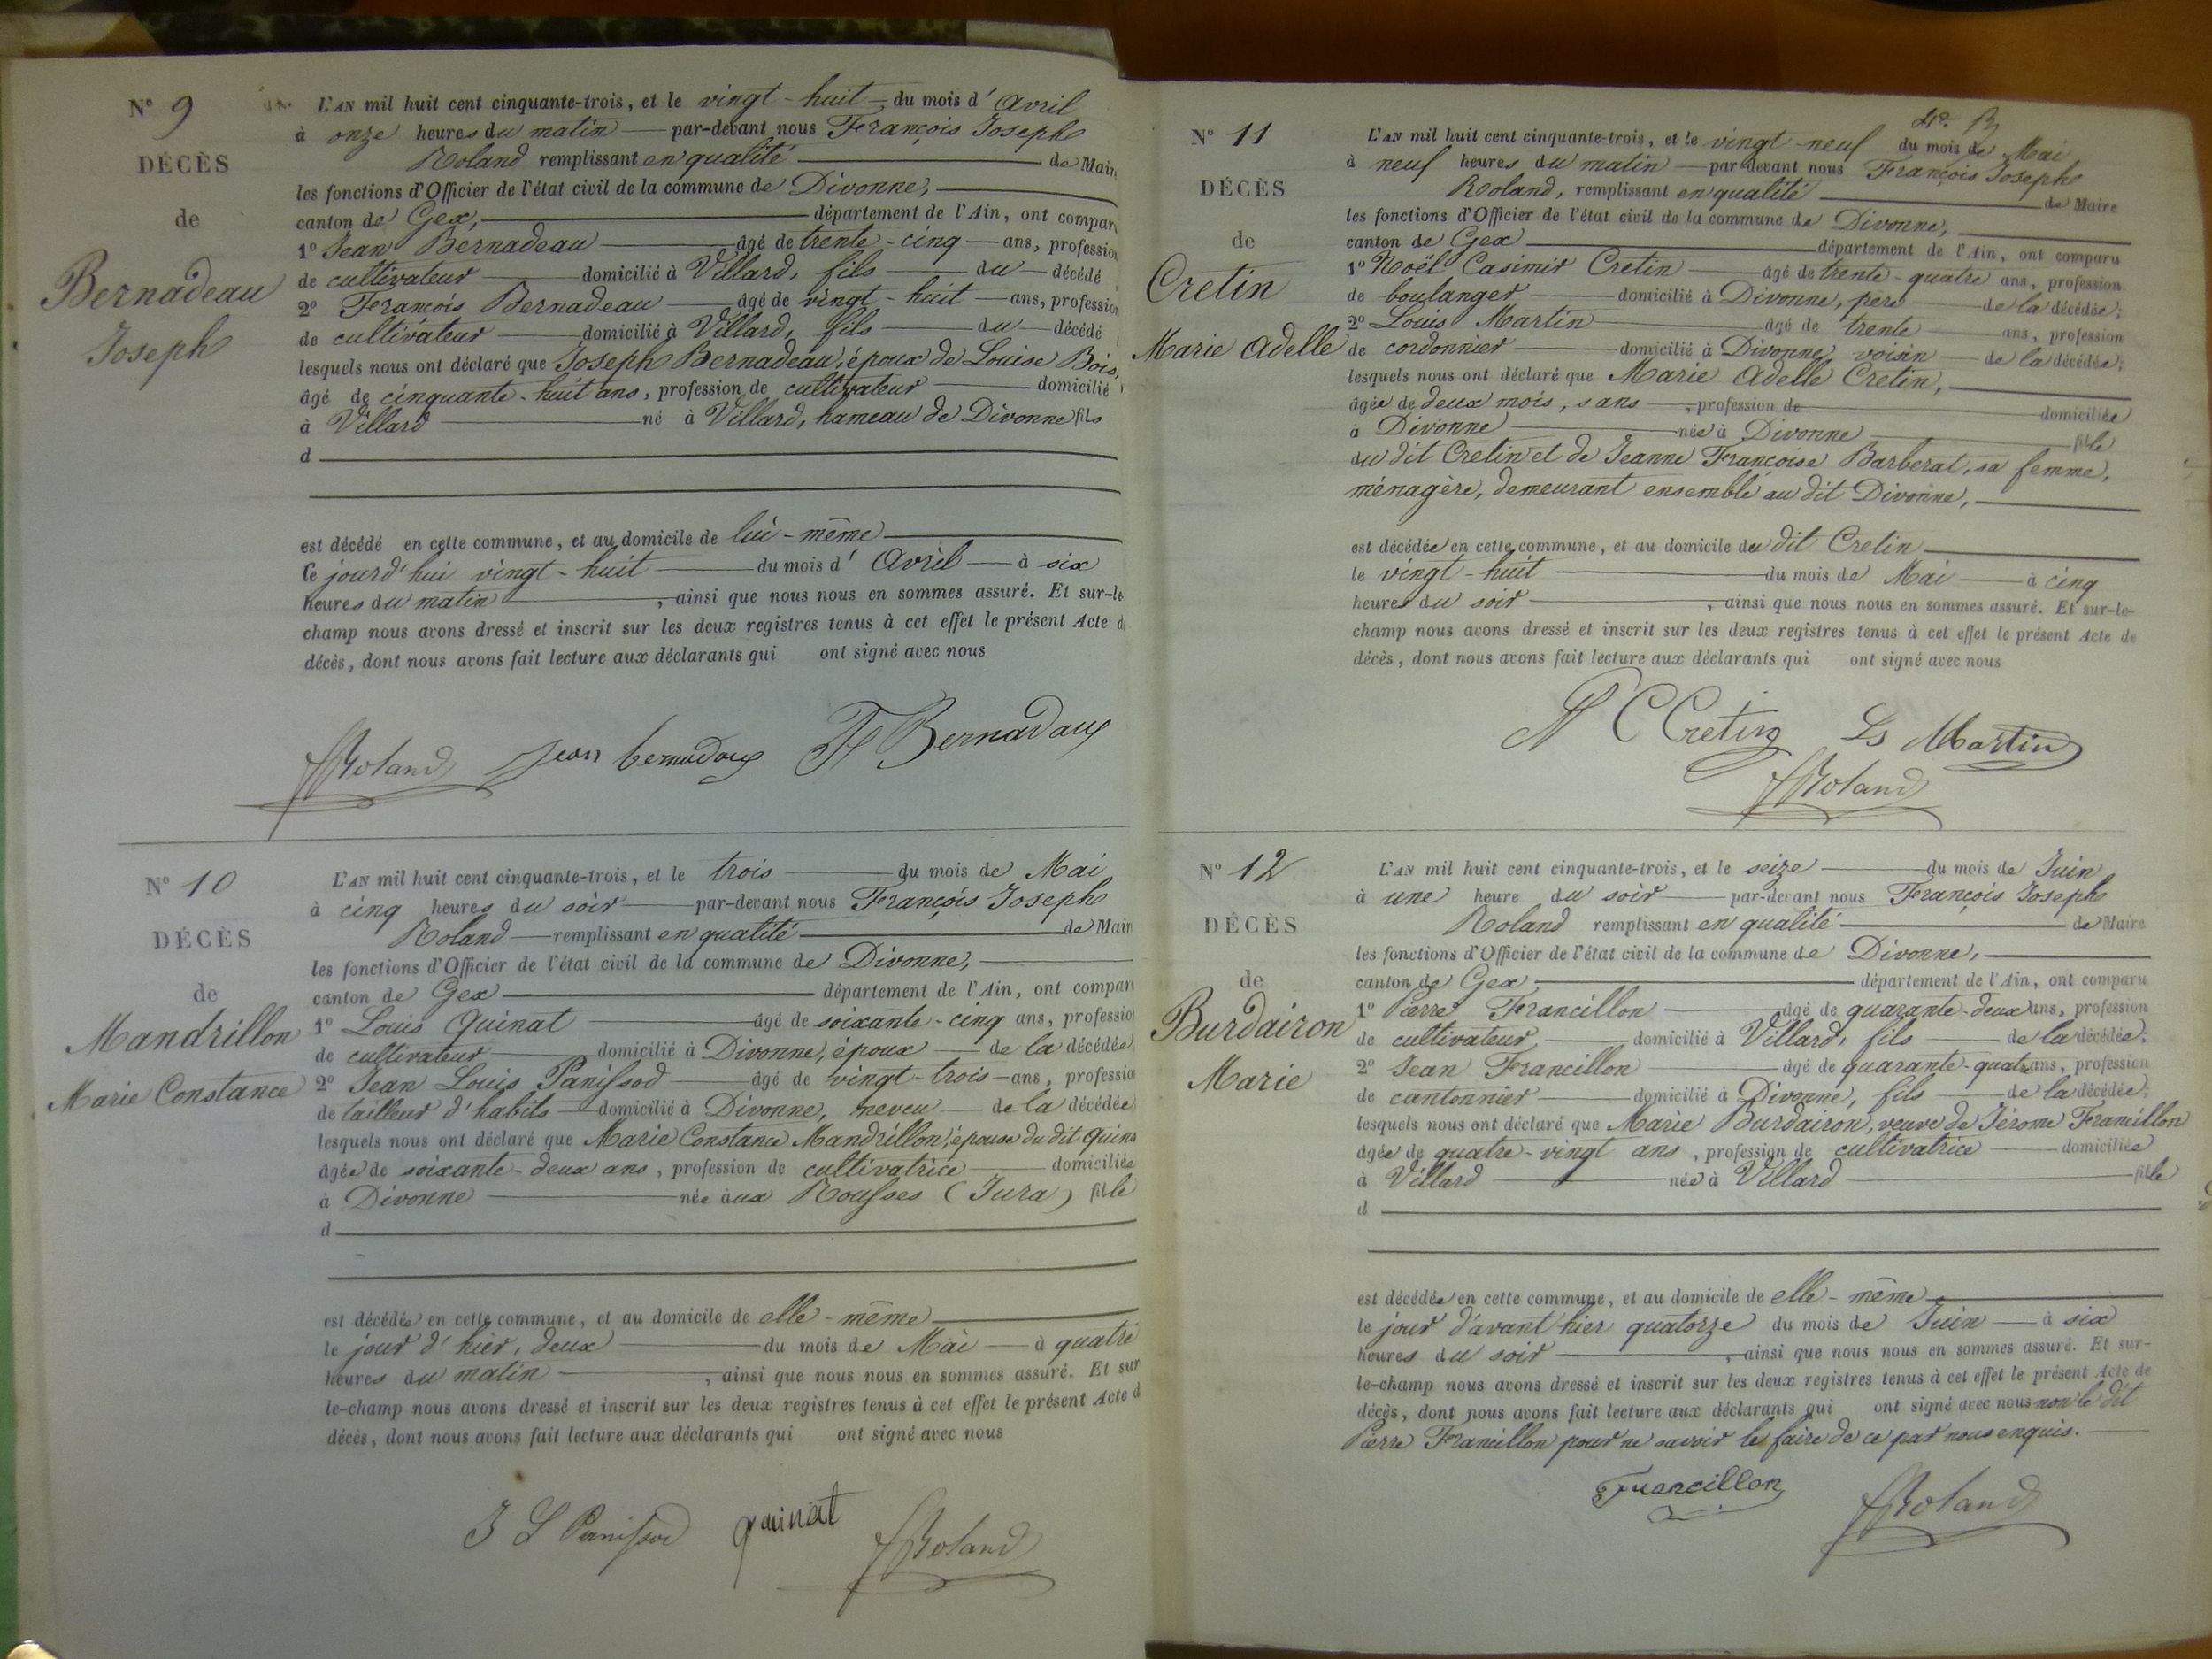 N° 9
DÉCÈS
de
Bernadeau
Joseph
L'AN mil huit cent cinquante-trois, et le vingt-huit du mois d'Avril
à onze heures du matin par-devant nous François Joseph
Roland remplissant en qualité de Mair
les fonctions d'Officier de l'état civil de la commune de Divonne,
canton de Gex, département de l'Ain, ont compar
1° Jean Bernadeau âgé de trente-cinq ans, profession
de cultivateur domicilié à Villard, fils du décédé
2° François Bernadeau âgé de vingt-huit ans, profession
de cultivateur domicilié à Villard, fils du décédé
lesquels nous ont déclaré que Joseph Bernadeau, époux de Louise Bois,
âgé de cinquante-huit ans, profession de cultivateur domicilié
à Villard né à Villard, hameau de Divonne fils
d
est décédé en cette commune, et au domicile de lui-même
Ce jourd'hui vingt-huit du mois d'Avril à six
heures du matin, ainsi que nous nous en sommes assuré. Et sur-le
champ nous avons dressé et inscrit sur les deux registres tenus à cet effet le présent Acte d
décès, dont nous avons fait lecture aux déclarants qui ont signé avec nous
FRoland Jean bernadaux F Bernadaux
N° 10
DÉCÈS
de
Mandrillon
Marie Constance
L'AN mil huit cent cinquante-trois, et le trois du mois de Mai
à cinq heures du soir par-devant nous François Joseph
Roland remplissant en qualité de Mair
les fonctions d'Officier de l'état civil de la commune de Divonne,
canton de Gex département de l'Ain, ont compar
1° Louis Quinat âgé de soixante-cinq ans, professio
de cultivateur domicilié à Divonne, époux de la décédée
2° Jean Louis Panissod âgé de vingt-trois ans, professio
de tailleur d'habits domicilié à Divonne, neveu de la décédée
lesquels nous ont déclaré que Marie Constance Mandrillon, épouse du dit Quina
âgée de soixante-deux ans, profession de cultivatrice domiciliée
à Divonne née aux Rousses (Jura) fille
d
est décédée en cette commune, et au domicile de elle-même
le jour d'hier, deux du mois de Mai à quatre
heures du matin, ainsi que nous nous en sommes assuré. Et sur
le-champ nous avons dressé et inscrit sur les deux registres tenus à cet effet le présent Acte d
décès, dont nous avons fait lecture aux déclarants qui ont signé avec nous
J L Panissod quinat FRoland
N° 11
DÉCÈS
de
Cretin
Marie Adelle
L'AN mil huit cent cinquante-trois, et le vingt-neuf du mois de Mai
à neuf heures du matin par-devant nous François Joseph
Roland, remplissant en qualité de Maire
les fonctions d'Officier de l'état civil de la commune de Divonne,
canton de Gex département de l'Ain, ont comparu
1° Noël Casimir Cretin âgé de trente-quatre ans, profession
de boulanger domicilié à Divonne, père de la décédée;
2° Louis Martin âgé de trente ans, profession
de cordonnier domicilié à Divonne, voisin de la décédée;
lesquels nous ont déclaré que Marie Adelle Cretin,
âgée de deux mois, sans, profession de domiciliée
à Divonne née à Divonne fille
du dit Cretin et de Jeanne Françoise Barberat, sa femme,
ménagère, demeurant ensemble au dit Divonne,
est décédée en cette commune, et au domicile du dit Cretin
le vingt-huit du mois de Mai à cinq
heures du soir, ainsi que nous nous en sommes assuré. Et sur-le-
champ nous avons dressé et inscrit sur les deux registres tenus à cet effet le présent Acte de
décès, dont nous avons fait lecture aux déclarants qui ont signé avec nous
N C Cretin Ls Martin
FRoland
N° 12
DÉCÈS
de
Burdairon
Marie
L'AN mil huit cent cinquante-trois, et le seize du mois de Juin
à une heure du soir par-devant nous François Joseph
Roland remplissant en qualité de Maire
les fonctions d'Officier de l'état civil de la commune de Divonne,
canton de Gex, département de l'Ain, ont comparu
1° Pierre Francillon âgé de quarante-deux ans, profession
de cultivateur domicilié à Villard, fils de la décédée;
2° Jean Francillon âgé de quarante-quatre ans, profession
de cantonnier domicilié à Divonne, fils de la décédée;
lesquels nous ont déclaré que Marie Burdairon, veuve de Jérome Francillon
âgée de quatre-vingt ans, profession de cultivatrice domiciliée
à Villard née à Villard fille
d
est décédée en cette commune, et au domicile de elle-même
le jour d'avant hier quatorze du mois de Juin à six
heures du soir, ainsi que nous nous en sommes assuré. Et sur-
le-champ nous avons dressé et inscrit sur les deux registres tenus à cet effet le présent Acte de
décès, dont nous avons fait lecture aux déclarants qui ont signé avec nous non le dit
Pierre Francillon pour ne savoir le faire de ce par nous enquis.
Francillon FRoland